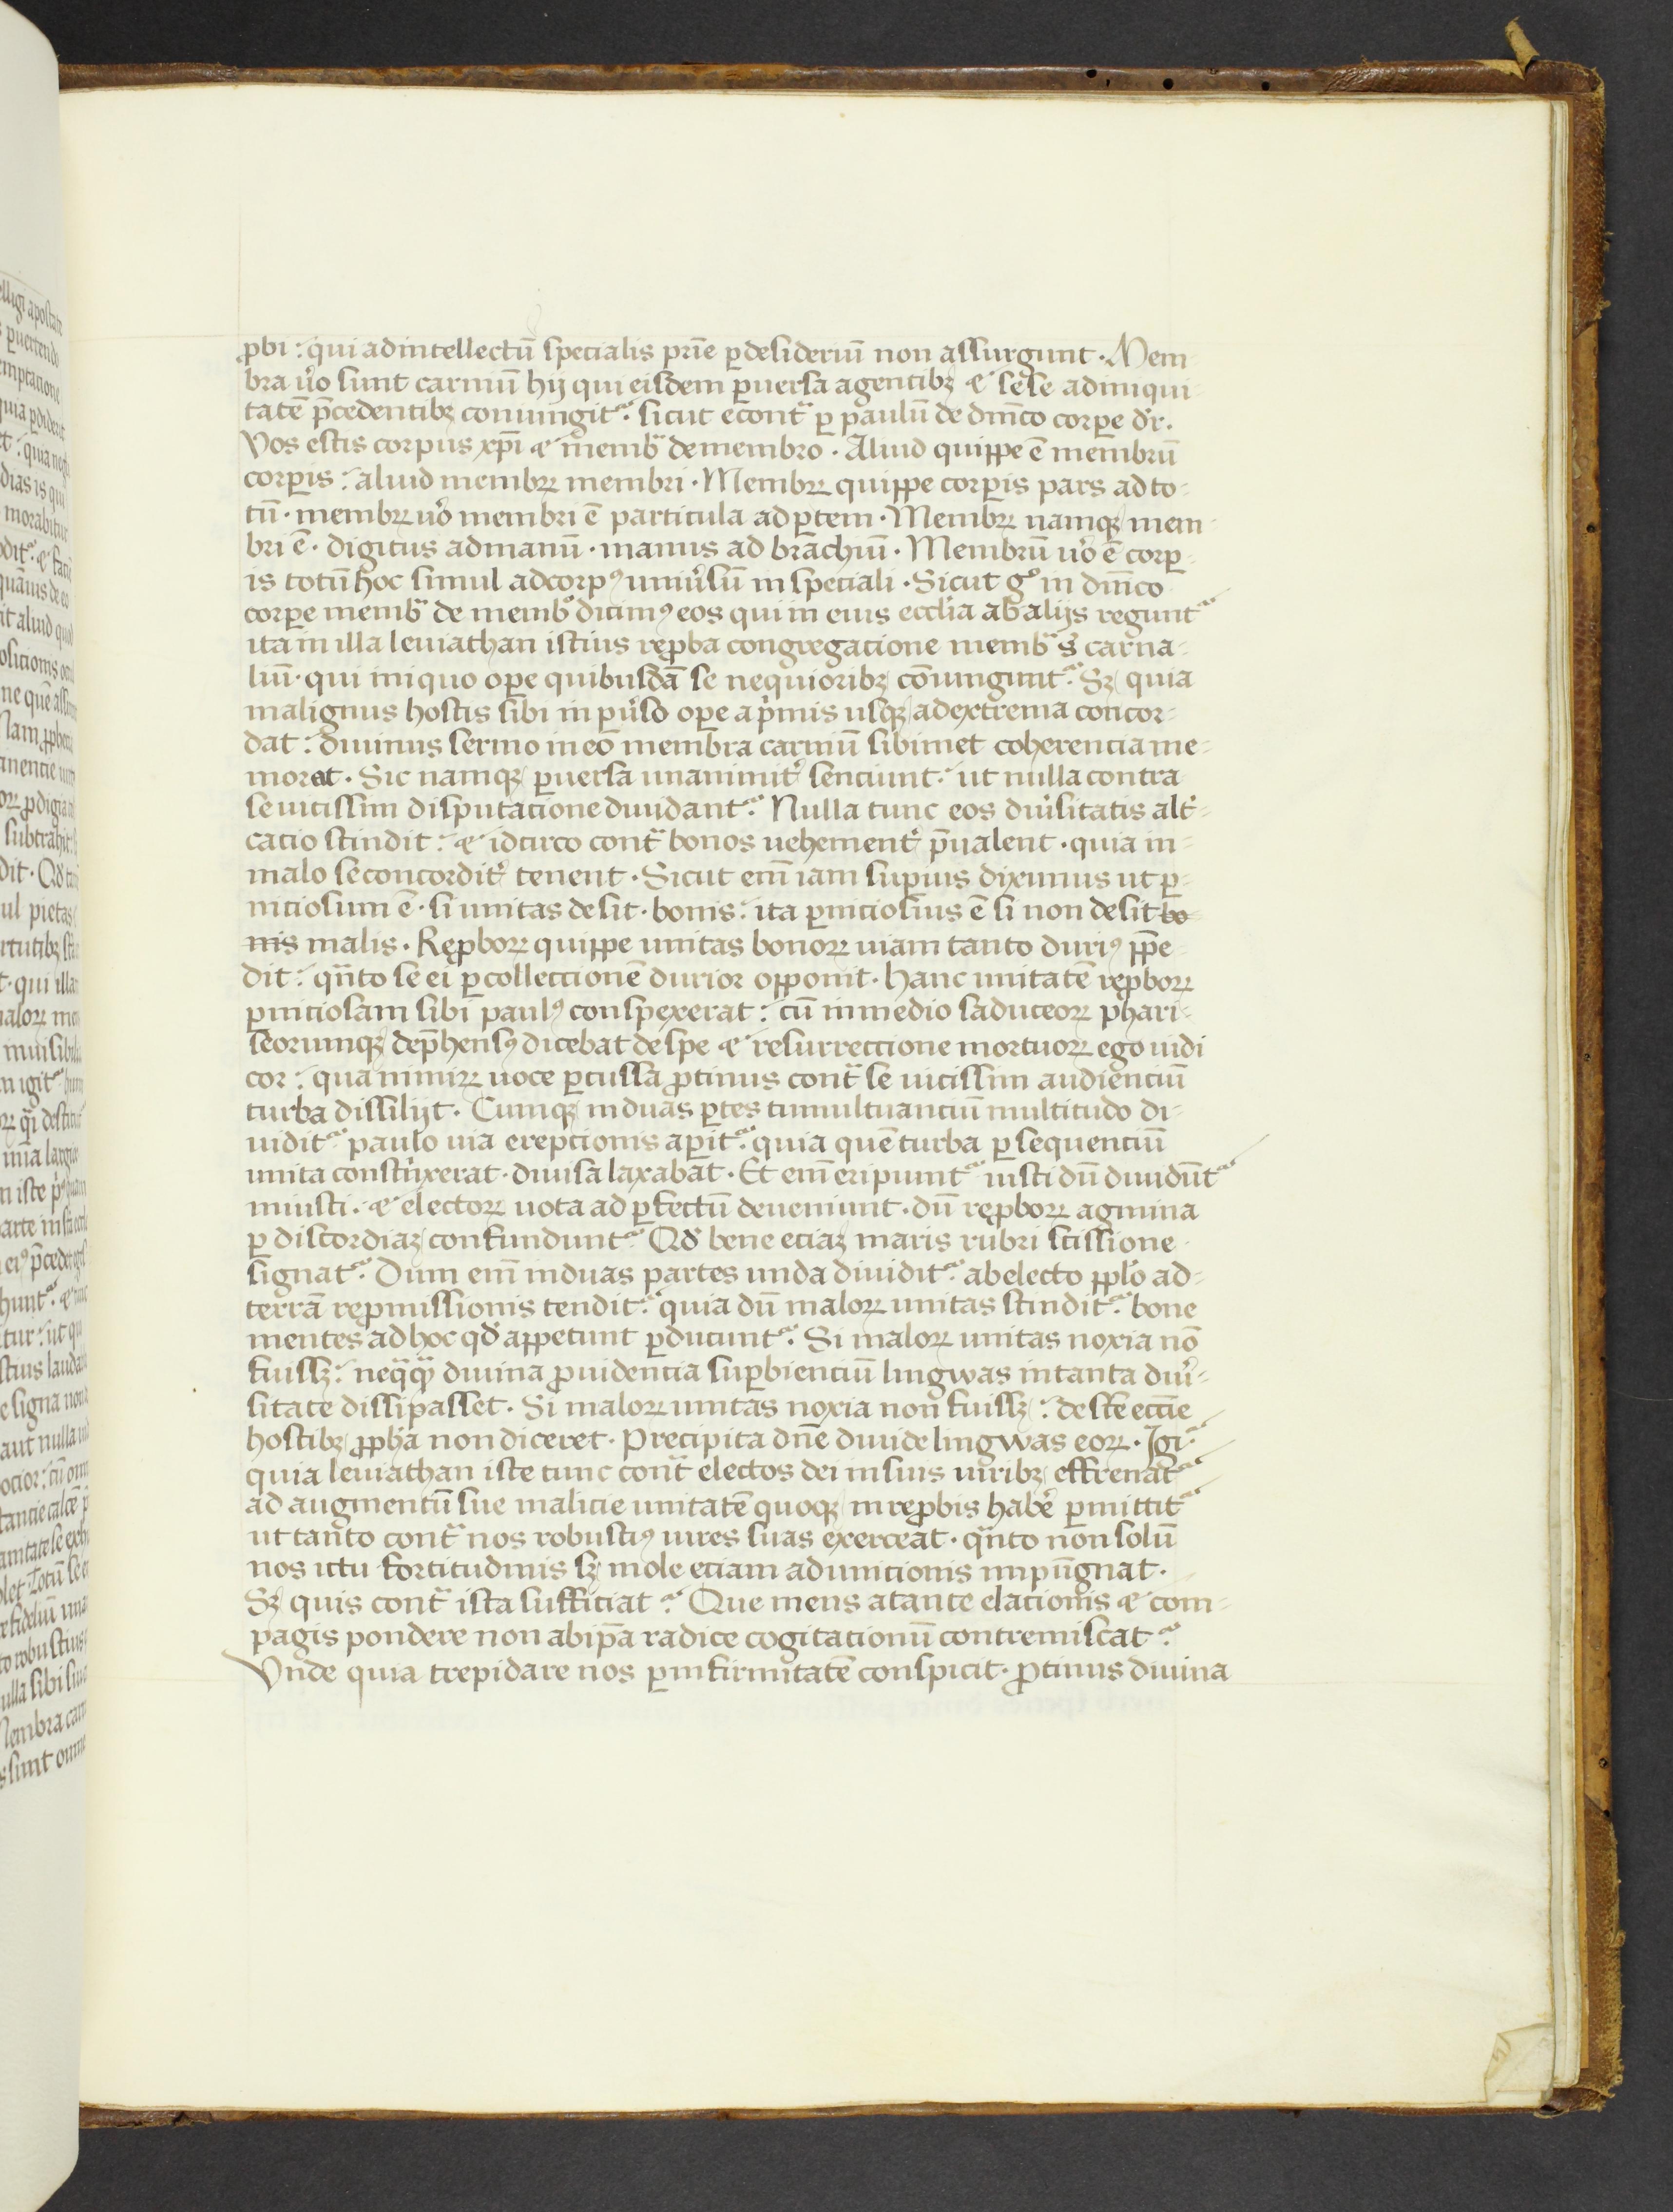 ꝓbi : qui ad intellectū specialis pr̄ie ꝑ desideriū non assurgunt · Mem-
bra ůo sunt carniū hij qui eisdem ꝑuersa agentibꝫ ⁊ sese ad iniqui-
tatē p̄cedentibꝫ coniungit᷑ : sicut econt᷑ ꝑ paulū de dn̄ico corꝑe dr̄ ·
Vos estis corpus xp̄i ⁊ memb᷑ de membro · Aliud quippe ē membrū
corꝑis : aliud membꝝ membri · Membꝝ quippe corꝑis pars ad to-
tū · membꝝ ůo membri ē particula ad ꝑtem · Membꝝ namqꝫ mem-
bri ē · digitus ad manū · manus ad brachiū · Membrū ůo ē corꝑ-
is totū hoc simul ad corpꝰ uniůsū in speciali · Sicut gͦ in dn̄ico
corꝑe memb᷑ de membͦ dicimꝰ eos qui in eius eccľia ab alijs regunt᷑
ita in illa leuiathan istius reꝓba congregacione memb᷑ s̄ carna-
liū · qui iniquo oꝑe quibusdā se nequioribꝫ cōiungunt᷑ : Sꝫ quia
malignus hostis sibi in ꝑůso oꝑe a pͥmis usqꝫ ad extrema concor-
dat : diuinus sermo in eo membra carniū sibimet coherencia me-
morat · Sic namqꝫ ꝑuersa unanimit̾ senciunt : ut nulla contra
se uicissim disputacione diuidant᷑ : Nulla tunc eos diůsitatis alt̾-
cacio scindit : ⁊ idcirco cont᷑ bonos uehement̾ p̄ualent · quia in-
malo se concordit̾ tenent · Sicut em̄ iam suꝑius diximus ut ꝑ-
niciosum ē · si unitas desit · bonis : ita ꝑniciosius ē si non desit bo-
nis malis · Reꝓboꝝ quippe unitas bonoꝝ uiam tanto duriꝰ īpe-
dit : qn̄to se ei ꝑ colleccionē durior opponit · Hanc unitatē reꝓboꝝ
ꝑniciosam sibi paulꝰ conspexerat : cū in medio saduceoꝝ phari-
seorumqꝫ dep̄hensꝰ dicebat de spe ⁊ resurreccione mortuoꝝ ego iudi
cor : qua nimiꝝ uoce ꝑcussa ꝓtinus cont᷑ se uicissim audienciū
turba dissilijt · Cumqꝫ in duas ꝑtes tumultuanciū multitudo di-
uidit᷑ paulo uia erepcionis aꝑit᷑ : quia quē turba ꝑsequenciū
unita constͥnxerat · diuisa laxabat · Et em̄ eripiunt᷑ iusti dū diuidūt᷑
iniusti · ⁊ electoꝝ uota ad ꝑfectū deueniunt · dū reꝓboꝝ agmina
ꝑ discordiaꝫ confundunt᷑ : Qď bene eciaꝫ maris rubri scissione
signat᷑ : Dum em̄ in duas partes unda diuidit᷑ : ab electo pplo ad-
terrā reꝓmissionis tendit᷑ : quia dū maloꝝ unitas scindit᷑ : bone
mentes ad hoc qď appetunt ꝑducunt᷑ : Si maloꝝ unitas noxia nō
fuissꝫ : neqꝗ̄ꝗ̄ diuina ꝓuidencia suꝑbienciū lingwas in tanta diů-
sitate dissipasset · Si maloꝝ unitas noxia non fuissꝫ : de sc̄e ecc̄ie
hostibꝫ ꝓph̄a non diceret · Precipita dn̄e diuide lingwas eoꝝ · Igi᷑
quia leuiathan iste tunc cont᷑ electos dei in suis uiribꝫ effrenat᷑
ad augmentū sue malicie unitatē quoqꝫ in reꝓbis haber̄ ꝑmittit᷑
ut tanto cont᷑ nos robustiꝰ uires suas exerceat · qn̄to non solū
nos ictu fortitudinis sꝫ mole eciam adunicionis inpūgnat ·
Sꝫ quis cont᷑ ista sufficiat ? Que mens a tante elacionis ⁊ com-
pagis pondere non ab ip̄a radice cogitacionū contremiscat ?
Vnde quia trepidare nos ꝑ infirmitatē conspicit · ꝓtinus diuina